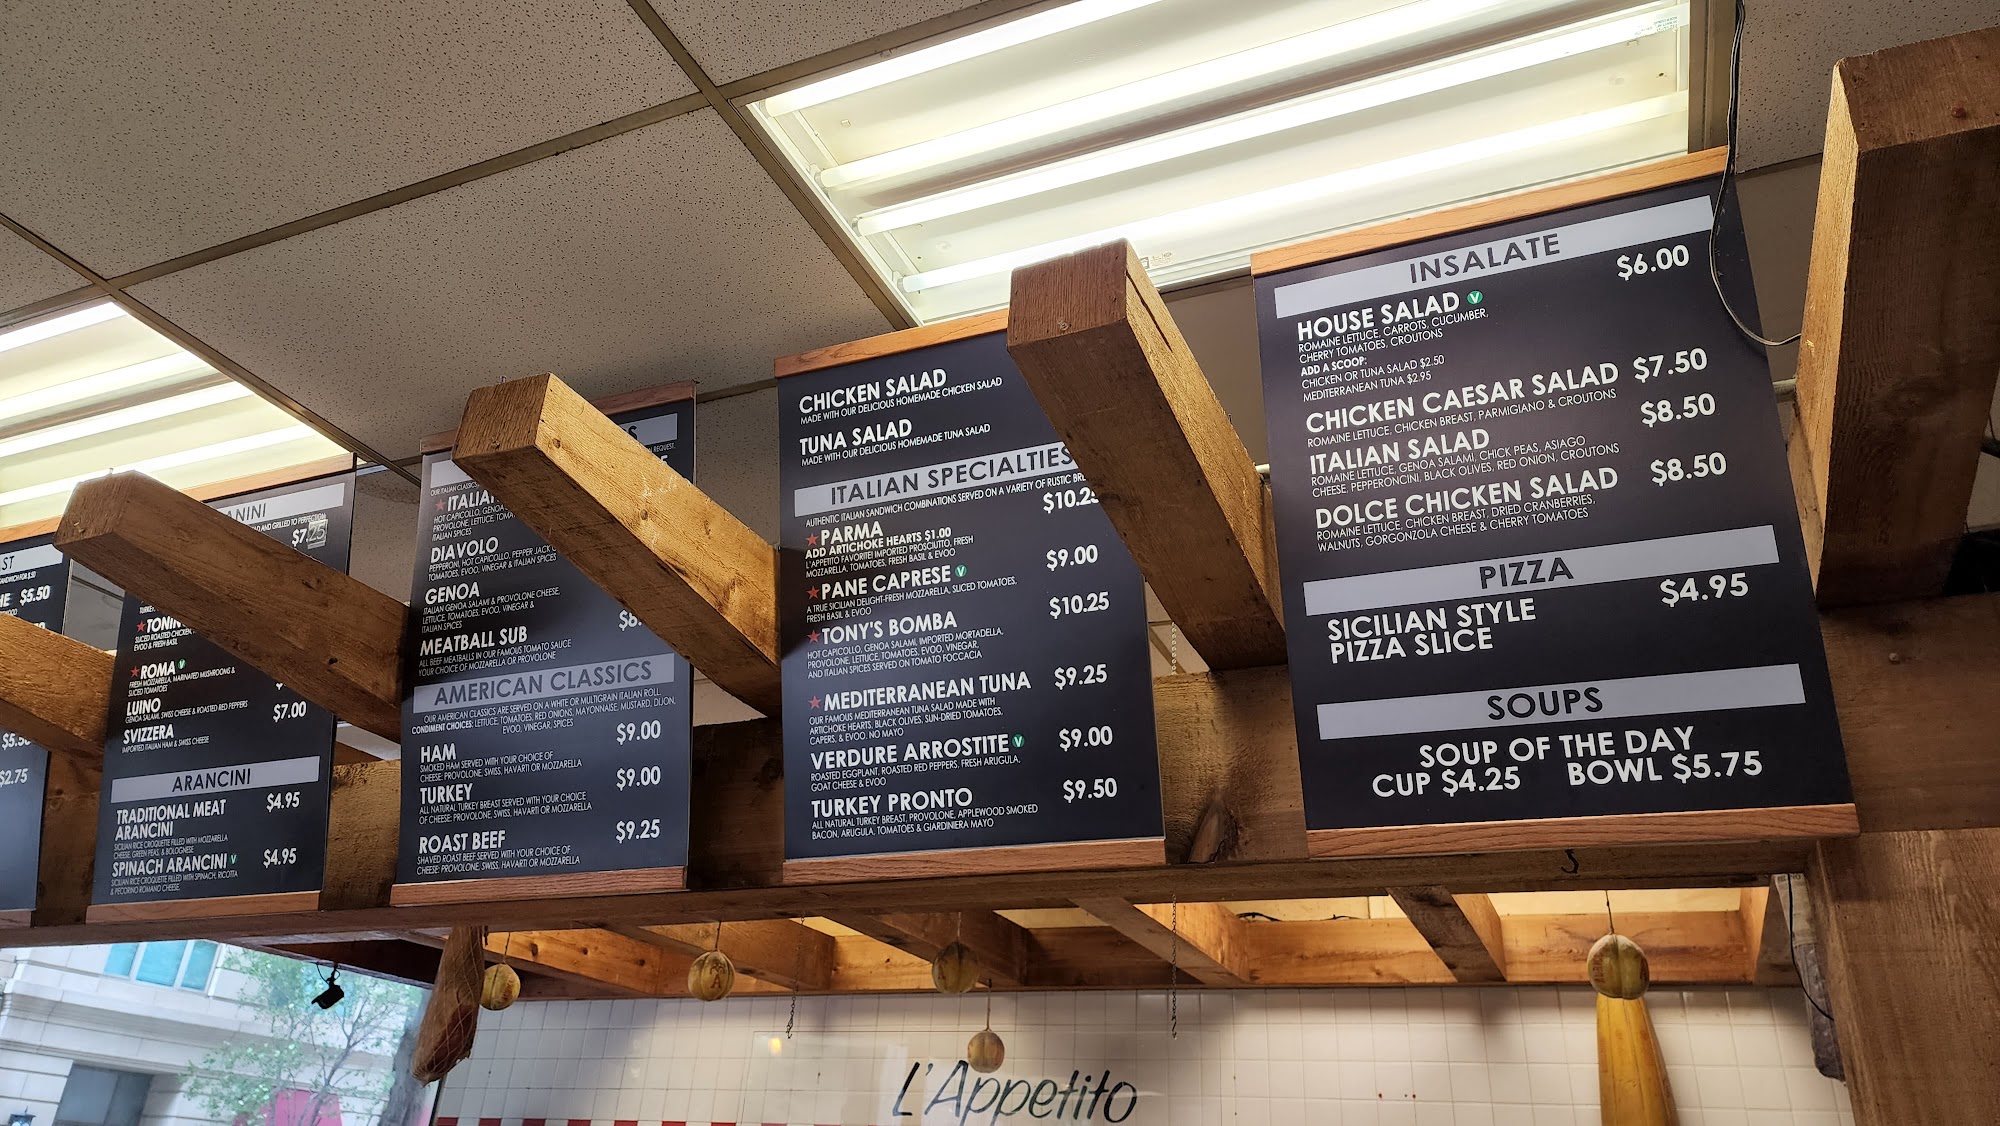 ST
SANDWICH FOR $.50
HE $5.50
$5.50
$2.75
ANINI
AND GRILLED TO PERFECTION
$7.25
★TONIN
SLICED ROASTED CHICKEN,
EVOO & FRESH BASIL
★ROMA V
FRESH MOZZARELLA, MARINATED MUSHROOMS &
SLICED TOMATOES
LUINO $7.00
GENOA SALAMI, SWISS CHEESE & ROASTED RED PEPPERS
SVIZZERA
IMPORTED ITALIAN HAM & SWISS CHEESE
ARANCINI
TRADITIONAL MEAT $4.95
ARANCINI
SICILIAN RICE CROQUETTE FILLED WITH MOZZARELLA
CHEESE, GREEN PEAS, & BOLOGNESE
SPINACH ARANCINI V $4.95
SICILIAN RICE CROQUETTE FILLED WITH SPINACH, RICOTTA
& PECORINO ROMANO CHEESE.
S
REQUEST.
OUR ITALIAN CLASSICS
★ITALIAN
HOT CAPICOLLO, GENOA
PROVOLONE, LETTUCE, TOMA
ITALIAN SPICES
DIAVOLO
PEPPERONI, HOT CAPICOLLO, PEPPER JACK C
TOMATOES, EVOO, VINEGAR & ITALIAN SPICES
GENOA
ITALIAN GENOA SALAMI & PROVOLONE CHEESE,
LETTUCE, TOMATOES, EVOO, VINEGAR &
ITALIAN SPICES
MEATBALL SUB $8.
ALL BEEF MEATBALLS IN OUR FAMOUS TOMATO SAUCE
YOUR CHOICE OF MOZZARELLA OR PROVOLONE
AMERICAN CLASSICS
OUR AMERICAN CLASSICS ARE SERVED ON A WHITE OR MULTIGRAIN ITALIAN ROLL.
CONDIMENT CHOICES: LETTUCE, TOMATOES, RED ONIONS, MAYONNAISE, MUSTARD, DIJON,
EVOO, VINEGAR, SPICES
HAM $9.00
SMOKED HAM SERVED WITH YOUR CHOICE OF
CHEESE: PROVOLONE, SWISS, HAVARTI OR MOZZARELLA
TURKEY $9.00
ALL NATURAL TURKEY BREAST SERVED WITH YOUR CHOICE
OF CHEESE: PROVOLONE, SWISS, HAVARTI OR MOZZARELLA
ROAST BEEF $9.25
SHAVED ROAST BEEF SERVED WITH YOUR CHOICE OF
CHEESE: PROVOLONE, SWISS, HAVARTI OR MOZZARELLA
CHICKEN SALAD
MADE WITH OUR DELICIOUS HOMEMADE CHICKEN SALAD
TUNA SALAD
MADE WITH OUR DELICIOUS HOMEMADE TUNA SALAD
ITALIAN SPECIALTIES
AUTHENTIC ITALIAN SANDWICH COMBINATIONS SERVED ON A VARIETY OF RUSTIC BRE
★PARMA $10.25
ADD ARTICHOKE HEARTS $1.00
L'APPETITO FAVORITE! IMPORTED PROSCIUTTO, FRESH
MOZZARELLA, TOMATOES, FRESH BASIL & EVOO
★PANE CAPRESE V $9.00
A TRUE SICILIAN DELIGHT-FRESH MOZZARELLA, SLICED TOMATOES,
FRESH BASIL & EVOO
★TONY'S BOMBA $10.25
HOT CAPICOLLO, GENOA SALAMI, IMPORTED MORTADELLA,
PROVOLONE, LETTUCE, TOMATOES, EVOO, VINEGAR,
AND ITALIAN SPICES SERVED ON TOMATO FOCCACIA
★MEDITERRANEAN TUNA $9.25
OUR FAMOUS MEDITERRANEAN TUNA SALAD MADE WITH
ARTICHOKE HEARTS, BLACK OLIVES, SUN-DRIED TOMATOES,
CAPERS, & EVOO. NO MAYO
VERDURE ARROSTITE V $9.00
ROASTED EGGPLANT, ROASTED RED PEPPERS, FRESH ARUGULA,
GOAT CHEESE & EVOO
TURKEY PRONTO $9.50
ALL NATURAL TURKEY BREAST, PROVOLONE, APPLEWOOD SMOKED
BACON, ARUGULA, TOMATOES & GIARDINIERA MAYO
INSALATE
HOUSE SALAD V $6.00
ROMAINE LETTUCE, CARROTS, CUCUMBER,
CHERRY TOMATOES, CROUTONS
ADD A SCOOP:
CHICKEN OR TUNA SALAD $2.50
MEDITERRANEAN TUNA $2.95
CHICKEN CAESAR SALAD $7.50
ROMAINE LETTUCE, CHICKEN BREAST, PARMIGIANO & CROUTONS
ITALIAN SALAD $8.50
ROMAINE LETTUCE, GENOA SALAMI, CHICK PEAS, ASIAGO
CHEESE, PEPPERONCINI, BLACK OLIVES, RED ONION, CROUTONS
DOLCE CHICKEN SALAD $8.50
ROMAINE LETTUCE, CHICKEN BREAST, DRIED CRANBERRIES,
WALNUTS, GORGONZOLA CHEESE & CHERRY TOMATOES
PIZZA
SICILIAN STYLE $4.95
PIZZA SLICE
SOUPS
SOUP OF THE DAY
CUP $4.25 BOWL $5.75
L'Appetito